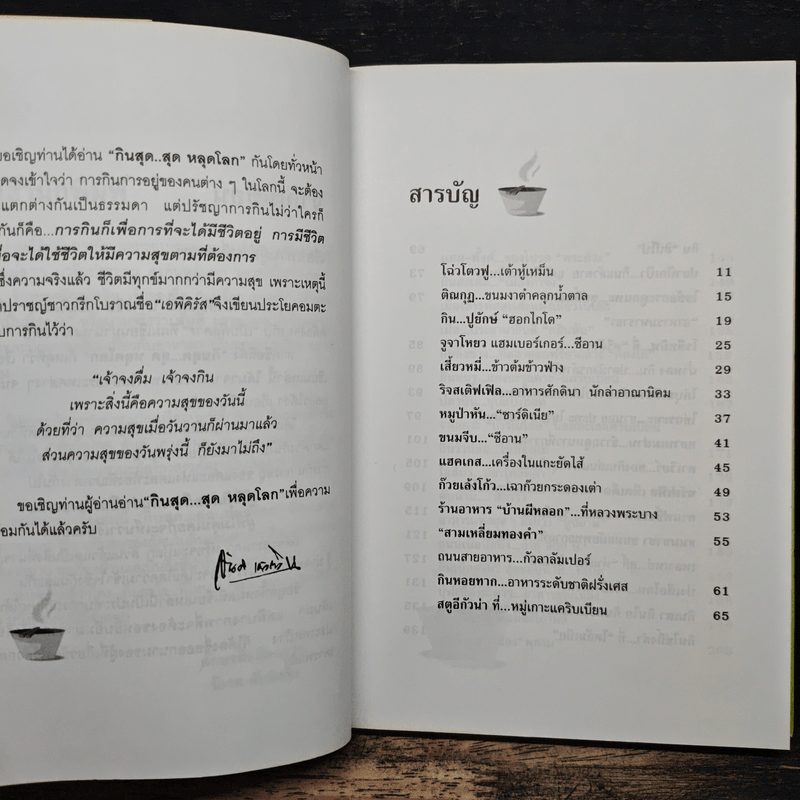 ขอเชิญท่านได้อ่าน “กินสุด..สุด หลุดโลก” กันโดยทั่วหน้า
จงเข้าใจว่า การกินการอยู่ของคนต่าง ๆ ในโลกนี้ จะต้อง
แตกต่างกันเป็นธรรมดา แต่ปรัชญาการกินไม่ว่าใครก็
กันก็คือ...การกินก็เพื่อการที่จะได้มีชีวิตอยู่ การมีชีวิต
จะได้ใช้ชีวิตให้มีความสุขตามที่ต้องการ
ซึ่งความจริงแล้ว ชีวิตมีทุกข์มากกว่ามีความสุข เพราะเหตุนี้
ปราชญ์ชาวกรีกโบราณชื่อ“เอพิคิรัส”จึงเขียนประโยคอมตะ
การกินไว้ว่า
“เจ้าจงดื่ม เจ้าจงกิน
เพราะสิ่งนี้คือความสุขของวันนี้
ด้วยที่ว่า ความสุขเมื่อวันวานก็ผ่านมาแล้ว
ส่วนความสุขของวันพรุ่งนี้ ก็ยังมาไม่ถึง”
ขอเชิญท่านผู้อ่านอ่าน“กินสุด...สุด หลุดโลก”เพื่อความ
กันได้แล้วครับ
สารบัญ
โฉ่วโตวฟู...เต้าหู้เหม็น 11
ติณกุฏ...ขนมงาดำคลุกน้ำตาล 15
กิน...ปูยักษ์ “ฮอกไกโด” 19
จูจาโหยว แฮมเบอร์เกอร์...ซีอาน 25
เสี้ยวหมี่...ข้าวต้มข้าวฟ่าง 29
ริจสเติฟเฟิล...อาหารศักดินา นักล่าอาณานิคม 33
หมูป่าหัน...“ซาร์ดิเนีย” 37
ขนมจีบ...“ซีอาน” 41
แฮคเกส...เครื่องในแกะยัดไส้ 45
ก๊วยเล้งโก้ว...เฉาก๊วยกระดองเต่า 49
ร้านอาหาร “บ้านผีหลอก”...ที่หลวงพระบาง 53
“สามเหลี่ยมทองคำ” 55
ถนนสายอาหาร...กัวลาลัมเปอร์
กินหอยทาก...อาหารระดับชาติฝรั่งเศส 61
สตูอีกัวน่า ที่...หมู่เกาะแคริบเบียน 65